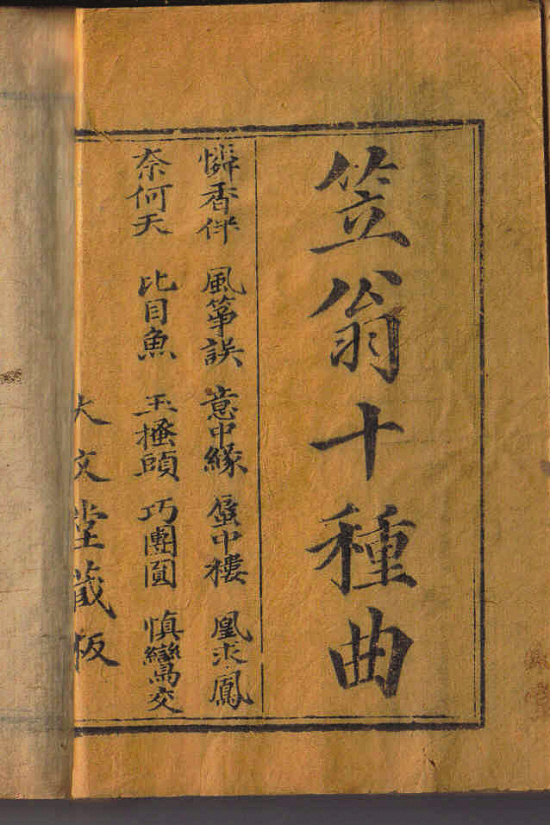 笠翁十種曲
憐香伴 風箏誤 意中緣 蜃中樓 凰求鳳
奈何天 比目魚 玉搔頭 巧團圓 慎鸞交
大文堂藏板